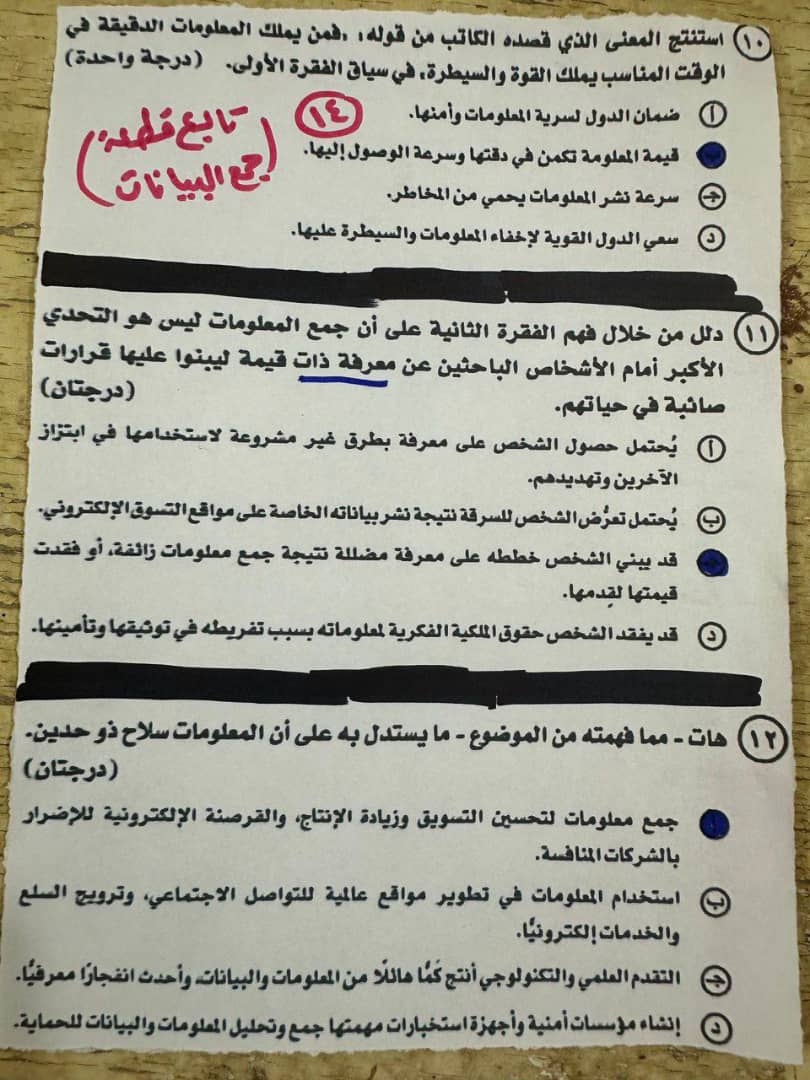 ١٠ استنتج المعنى الذي قصده الكاتب من قوله: «فمن يملك المعلومات الدقيقة في
الوقت المناسب يملك القوة والسيطرة» في سياق الفقرة الأولى. (درجة واحدة)
أ ضمان الدول لسرية المعلومات وأمنها.
ب قيمة المعلومة تكمن في دقتها وسرعة الوصول إليها.
ج سرعة نشر المعلومات يحمي من المخاطر.
د سعي الدول القوية لإخفاء المعلومات والسيطرة عليها.
١٤
تابع قطعة
(جمع البيانات)
١١ دلل من خلال فهم الفقرة الثانية على أن جمع المعلومات ليس هو التحدي
الأكبر أمام الأشخاص الباحثين عن معرفة ذات قيمة ليبنوا عليها قرارات
صائبة في حياتهم. (درجتان)
أ يُحتمل حصول الشخص على معرفة بطرق غير مشروعة لاستخدامها في ابتزاز
الآخرين وتهديدهم.
ب يُحتمل تعرُّض الشخص للسرقة نتيجة نشر بياناته الخاصة على مواقع التسوق الإلكتروني.
ج قد يبني الشخص خططه على معرفة مضللة نتيجة جمع معلومات زائفة، أو فقدت
قيمتها لقِدمها.
د قد يفقد الشخص حقوق الملكية الفكرية لمعلوماته بسبب تفريطه في توثيقها وتأمينها.
١٢ هات - مما فهمته من الموضوع - ما يستدل به على أن المعلومات سلاح ذو حدين.
(درجتان)
أ جمع معلومات لتحسين التسويق وزيادة الإنتاج، والقرصنة الإلكترونية للإضرار
بالشركات المنافسة.
ب استخدام المعلومات في تطوير مواقع عالمية للتواصل الاجتماعي، وترويج السلع
والخدمات إلكترونيًّا.
ج التقدم العلمي والتكنولوجي أنتج كَمًّا هائلًا من المعلومات والبيانات، وأحدث انفجارًا معرفيًّا.
د إنشاء مؤسسات أمنية وأجهزة استخبارات مهمتها جمع وتحليل المعلومات والبيانات للحماية.